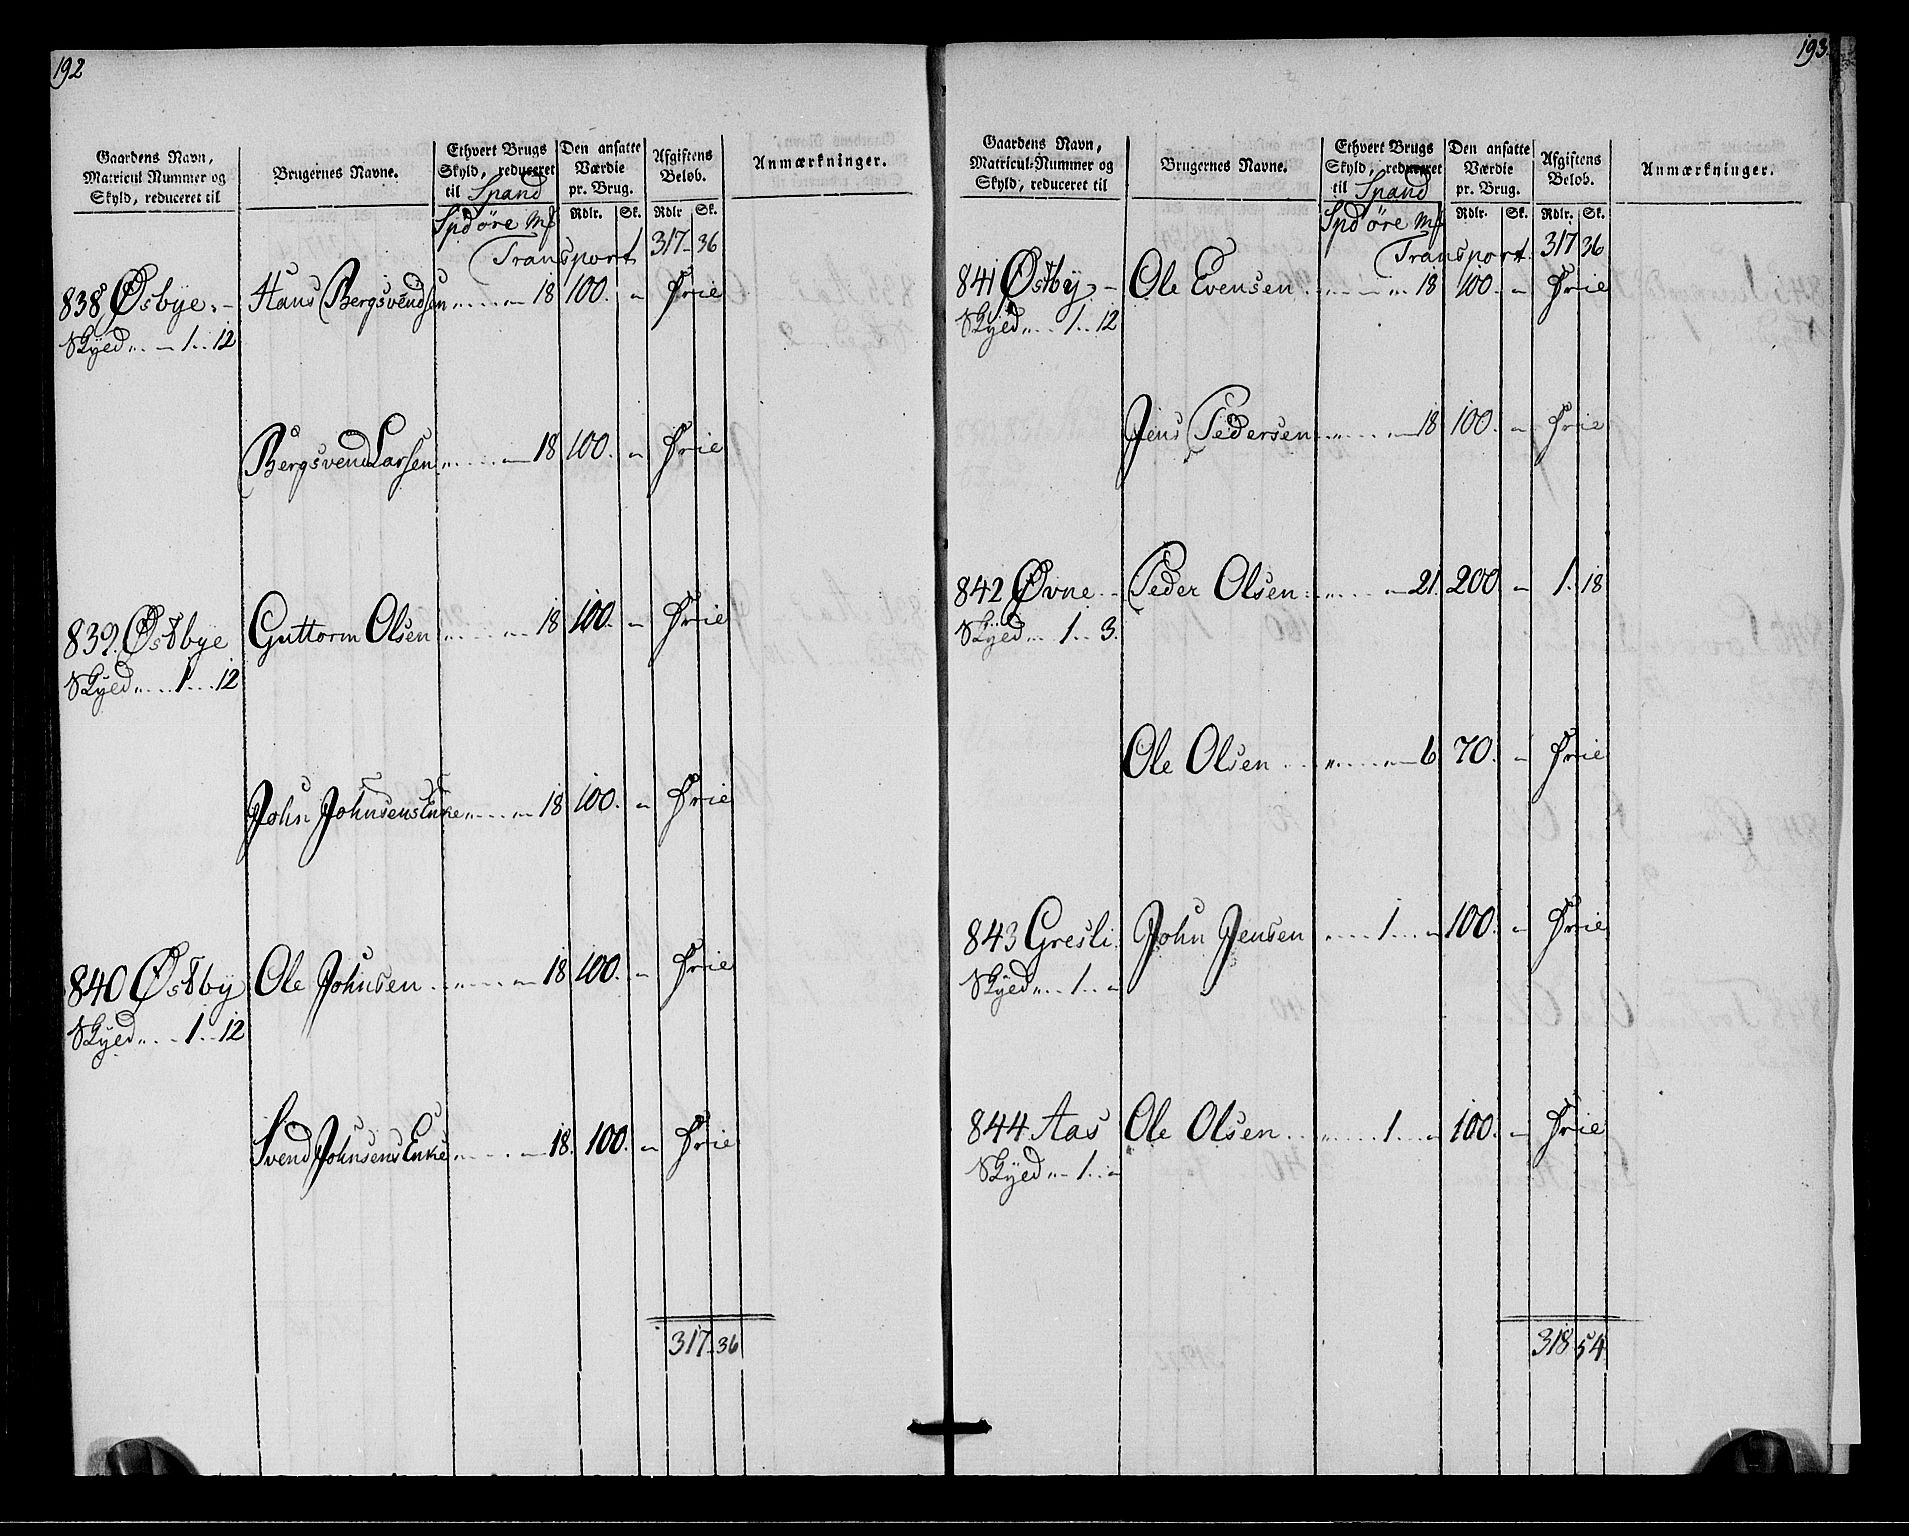 192
Gaardens Navn, Matricul Nummer og Skyld, reduceret til | Brugernes Navne. | Ethvert Brugs Skyld, reduceret til Spand | Den ansatte Værdie pr. Brug. | Afgiftens Beløb. | Anmærkninger.
Spd øre Mf | Rdlr. | Sk. | Rdlr | Sk.
Transport 317 - 36
838 Øsbye. - Hans Bergsvendsen 18 100. " Frie
Skyed 1 .. 12
Bergsvend Larsen 18 100. " Frie
839. Østbye Guttorm Olsen 18 100. " Frie
Skyed 1 .. 12
John Johnsens Enke 18 100. " Frie
840 Østby Ole Johnsen 18 100. " Frie
Skyed 1 .. 12
Svend Johnsens Enke 18. 100. " Frie
317 - 36
193
Gaardens Navn, Matricul-Nummer og Skyld, reduceret til | Brugernes Navne. | Ethvert Brugs Skyld, reduceret til Spand | Den ansatte Værdie pr. Brug. | Afgiftens Beløb. | Anmærkninger.
Spd øre Mf | Rdlr. | Sk. | Rdlr. | Sk.
Transport. 317 36
841 Østby - Ole Evensen 18 100. " Frie
Skyed 1 .. 12
Jens Pedersen 18 100. " Frie
842 Øvne - Peder Olsen 21. 200 " 1. 18
Skyed 1 .. 3.
Ole Olsen 6. 70. " Frie
843 Gresli. John Jensen 1 " 100. " Frie
Skyed 1 .. "
844. Aas Ole Olsen 1 " 100. " Frie
Skyed 1 .. "
318 54